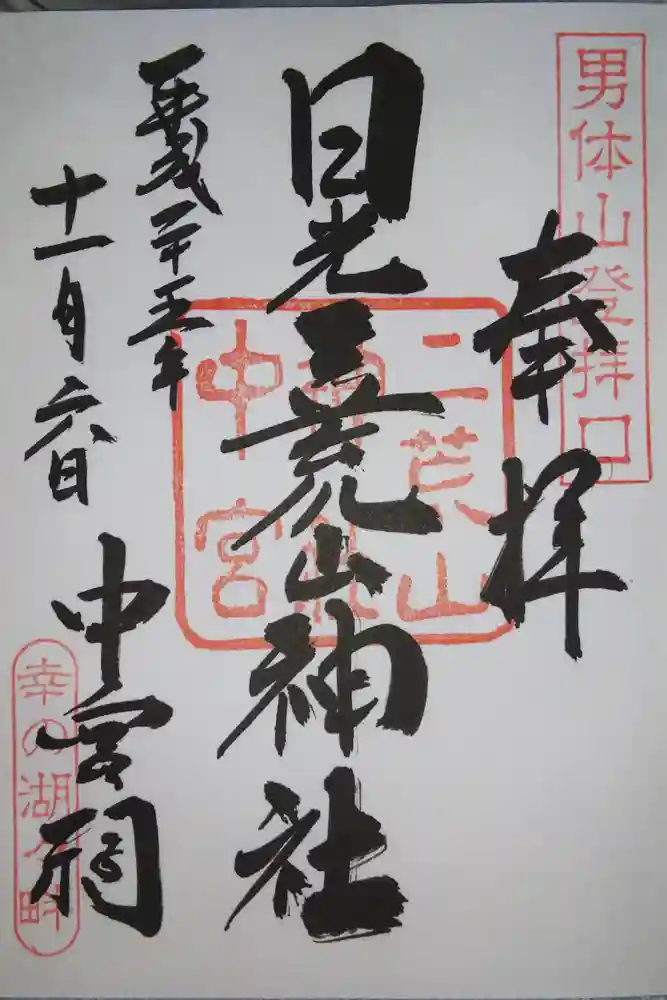 男体山登拝口
奉拝
日光二荒山神社
二荒山
神社
中宮
平成二十五年
十一月六日
中宮祠
幸の湖々畔